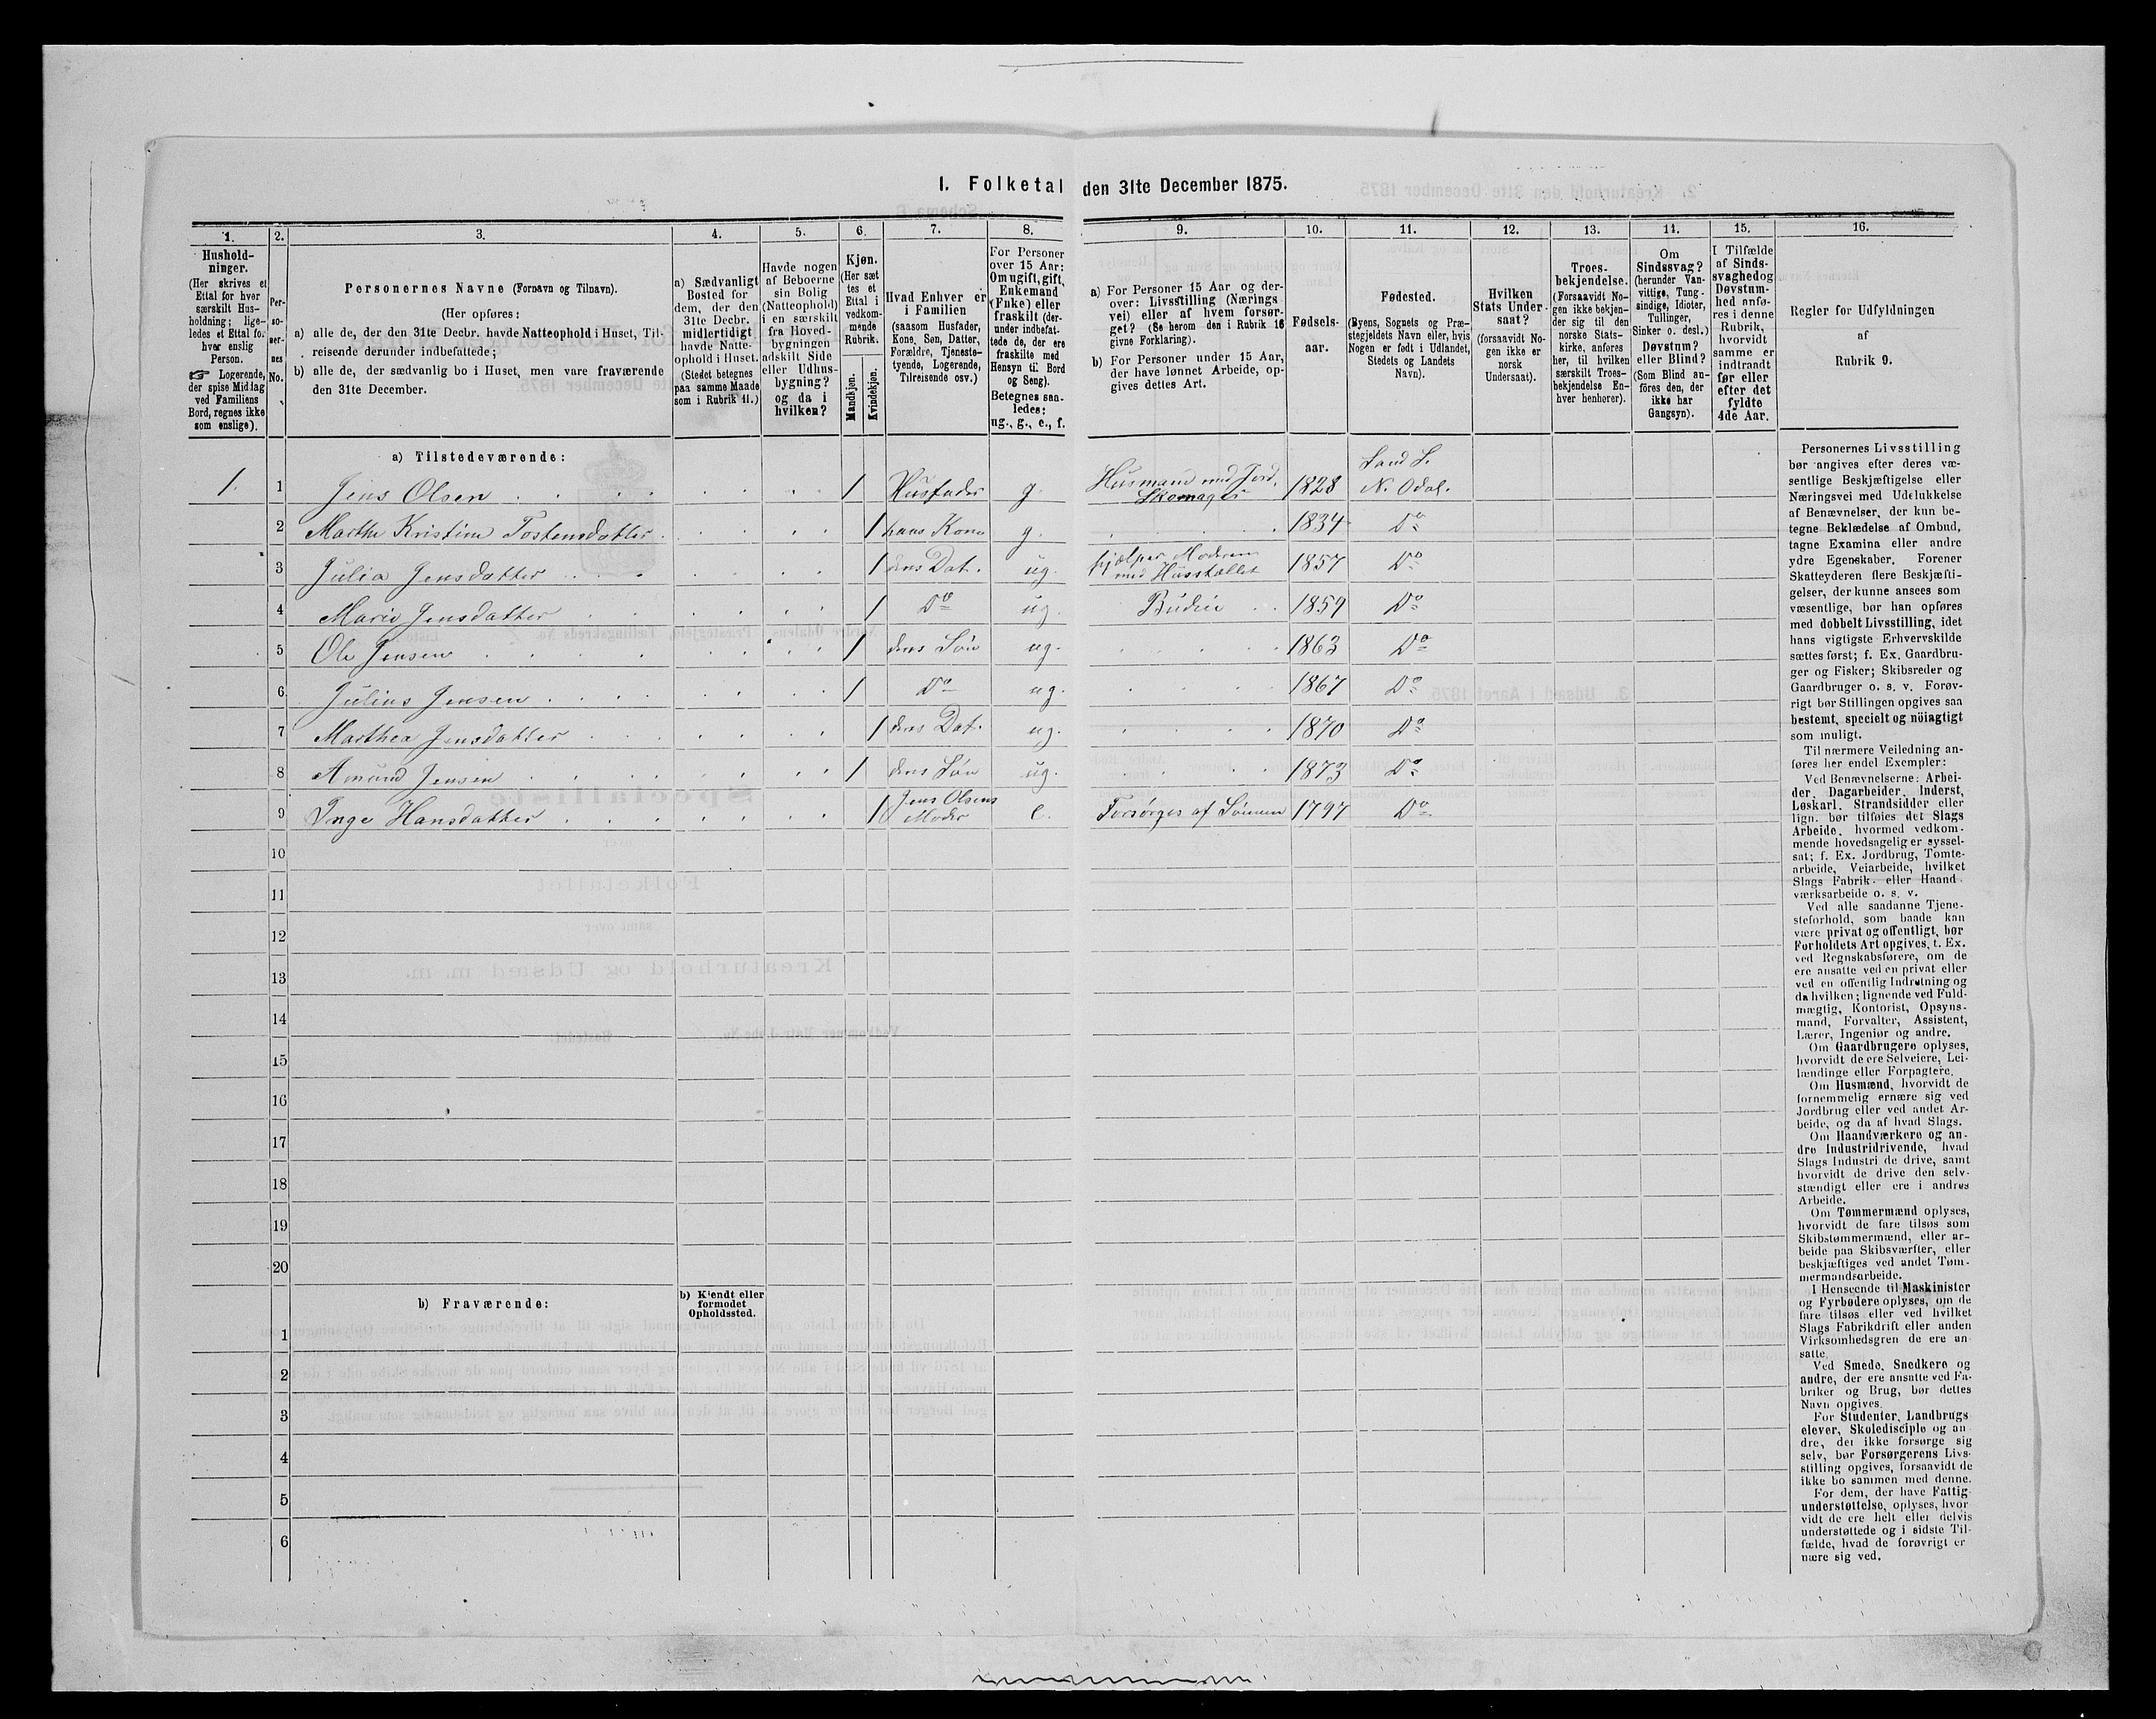 1. Folketal den 31te December 1875.
1. 2. 3. 4. 5. 6. 7. 8. 9. 10. 11. 12. 13. 14. 15. 16.
Hushold-
ninger.
(Her skrives et
Ettal for hver
særskilt Hus-
holdning; lige-
ledes et Ettal for
hver enslig
Person.
☞ Logerende,
der spise Middag
ved Familiens
Bord, regnes ikke
som enslige).
Per-
so-
ner-
nes
No.
Personernes Navne (Fornavn og Tilnavn).
(Her opføres:
a) alle de, der den 31te Decbr. havde Natteophold i Huset, Til-
reisende derunder indbefattede;
b) alle de, der sædvanlig bo i Huset, men vare fraværende
den 31te December.
a) Sædvanligt
Bosted for
dem, der den
31te Decbr.
midlertidigt
havde Natte-
ophold i Huset.
(Stedet betegnes
paa samme Maade
som i Rubrik 11.)
Havde nogen
af Beboerne
sin Bolig
(Natteophold)
i en særskilt
fra Hoved-
bygningen
adskilt Side
eller Udhus-
bygning?
og da i
hvilken?
Kjøn.
(Her sæt
tes et
Ettal i
vedkom-
mende
Rubrik.
Mandkjøn.
Kvindekjøn.
Hvad Enhver er
i Familien
(saasom Husfader,
Kone, Søn, Datter,
Forældre, Tjeneste-
tyende, Logerende,
Tilreisende osv.)
For Personer
over 15 Aar:
Om ugift, gift,
Enkemand
(Enke) eller
fraskilt (der-
under indbefat-
tede de, der ere
fraskilte med
Hensyn til Bord
og Seng).
Betegnes saa-
ledes:
ug., g., e., f.
a) For Personer 15 Aar og der-
over: Livsstilling (Nærings
vei) eller af hvem forsør-
get? (Se herom den i Rubrik 16
givne Forklaring).
b) For Personer under 15 Aar,
der have lønnet Arbeide, op-
gives dettes Art.
Fødsels-
aar.
Fødested.
(Byens, Sognets og Præ-
stegjeldets Navn eller, hvis
Nogen er født i Udlandet,
Stedets og Landets
Navn).
Hvilken
Stats Under-
saat?
(forsaavidt No-
gen ikke er
norsk
Undersaat).
Troes-
bekjendelse.
(Forsaavidt No-
gen ikke bekjen-
der sig til den
norske Stats-
kirke, anføres
her, til hvilken
særskilt Troes-
bekjendelse En-
hver henhører).
Om
Sindssvag?
(herunder Van-
vittige, Tung-
sindige, Idioter,
Tullinger,
Sinker o. desl.)
Døvstum?
eller Blind?
(Som Blind an-
föres den, der
ikke har
Gangsyn).
I Tilfælde
af Sinds-
svaghed og
Døvstum-
hed anfø-
res i denne
Rubrik,
hvorvidt
samme er
indtraadt
før eller
efter det
fyldte
4de Aar.
Regler for Udfyldningen
af
Rubrik 9.
a) Tilstedeværende:
1. 1 Jens Olsen 1 Husfader g. Husmand med Jord, Skomager 1828 Sand S. N. Odal.
2 Marthe Kristine Tostensdatter 1 hans Kone g. 1834 Do
3 Julia Jensdatter 1 deres Dat. ug. hjælper Moderen med Husstallet 1857 Do
4 Marie Jensdatter 1 Do ug. Budeie 1859 Do
5 Ole Jensen 1 deres Søn ug. 1863 Do
6 Julius Jensen 1 Do ug. 1867 Do
7 Marthea Jensdatter 1 deres Dat. ug. 1870 Do
8 Amund Jensen 1 deres Søn ug. 1873 Do
9 Inge Hansdatter 1 Jens Olsens Moder e. Forsørges af Sønnen 1797 Do
10
11
12
13
14
15
16
17
18
19
20
b) Fraværende:
b) Kjendt eller
formodet
Opholdssted.
1
2
3
4
5
6
Personernes Livsstilling
bør angives efter deres væ-
sentlige Beskjæftigelse eller
Næringsvei med Udelukkelse
af Benævnelser, der kun be-
tegne Beklædelse af Ombud,
tagne Examina eller andre
ydre Egenskaber. Forener
Skatteyderen flere Beskjæfti-
gelser, der kunne ansees som
væsentlige, bør han opføres
med dobbelt Livsstilling, idet
hans vigtigste Erhvervskilde
sættes først; f. Ex. Gaardbru-
ger og Fisker; Skibsreder og
Gaardbruger o. s. v. Forøv-
rigt bør Stillingen opgives saa
bestemt, specielt og nöiagtigt
som muligt.
Til nærmere Veiledning an-
føres her endel Exempler:
Ved Benævnelserne: Arbei-
der, Dagarbeider, Inderst,
Løskarl, Strandsidder eller
lign. bør tilføies det Slags
Arbeide, hvormed vedkom-
mende hovedsagelig er syssel-
sat; f. Ex. Jordbrug, Tomte-
arbeide, Veiarbeide, hvilket
Slags Fabrik- eller Haand-
værksarbeide o. s. v.
Ved alle saadanne Tjene-
steforhold, som baade kan
være privat og offentligt, bør
Forholdets Art opgives, t. Ex.
ved Regnskabsførere, om de
ere ansatte ved en privat eller
ved en offentlig Indretning og
da hvilken; lignende ved Fuld-
mægtig, Kontorist, Opsyns-
mand, Forvalter, Assistent,
Lærer, Ingeniør og andre.
Om Gaardbrugere oplyses,
hvorvidt de ere Selveiere, Lei-
lændinge eller Forpagtere.
Om Husmænd, hvorvidt de
fornemmelig ernære sig ved
Jordbrug eller ved andet Ar-
beide, og da af hvad Slags.
Om Haandværkere og an-
dre Industridrivende, hvad
Slags Industri de drive, samt
hvorvidt de drive den selv-
stændigt eller ere i andres
Arbeide.
Om Tømmermænd oplyses,
hvorvidt de fare tilsøs som
Skibstømmermænd, eller ar-
beide paa Skibsværfter, eller
beskjæftiges ved andet Tøm-
mermandsarbeide.
I Henseende til Maskinister
og Fyrbødere oplyses, om de
fare tilsøs eller ved hvilket
Slags Fabrikdrift eller anden
Virksomhedsgren de ere an-
satte.
Ved Smede, Snedkere og
andre, der ere ansatte ved Fa-
briker og Brug, bør dettes
Navn opgives.
For Studenter, Landbrugs
elever, Skoledisciple og an
dre, der ikke forsørge sig
selv, bør Forsørgerens Livs-
stilling opgives, forsaavidt de
ikke bo sammen med denne.
For dem, der have Fattig-
understøttelse, oplyses, hvor
vidt de ere helt eller delvis
understøttede og i sidste Til-
fælde, hvad de forøvrigt er
nære sig ved.